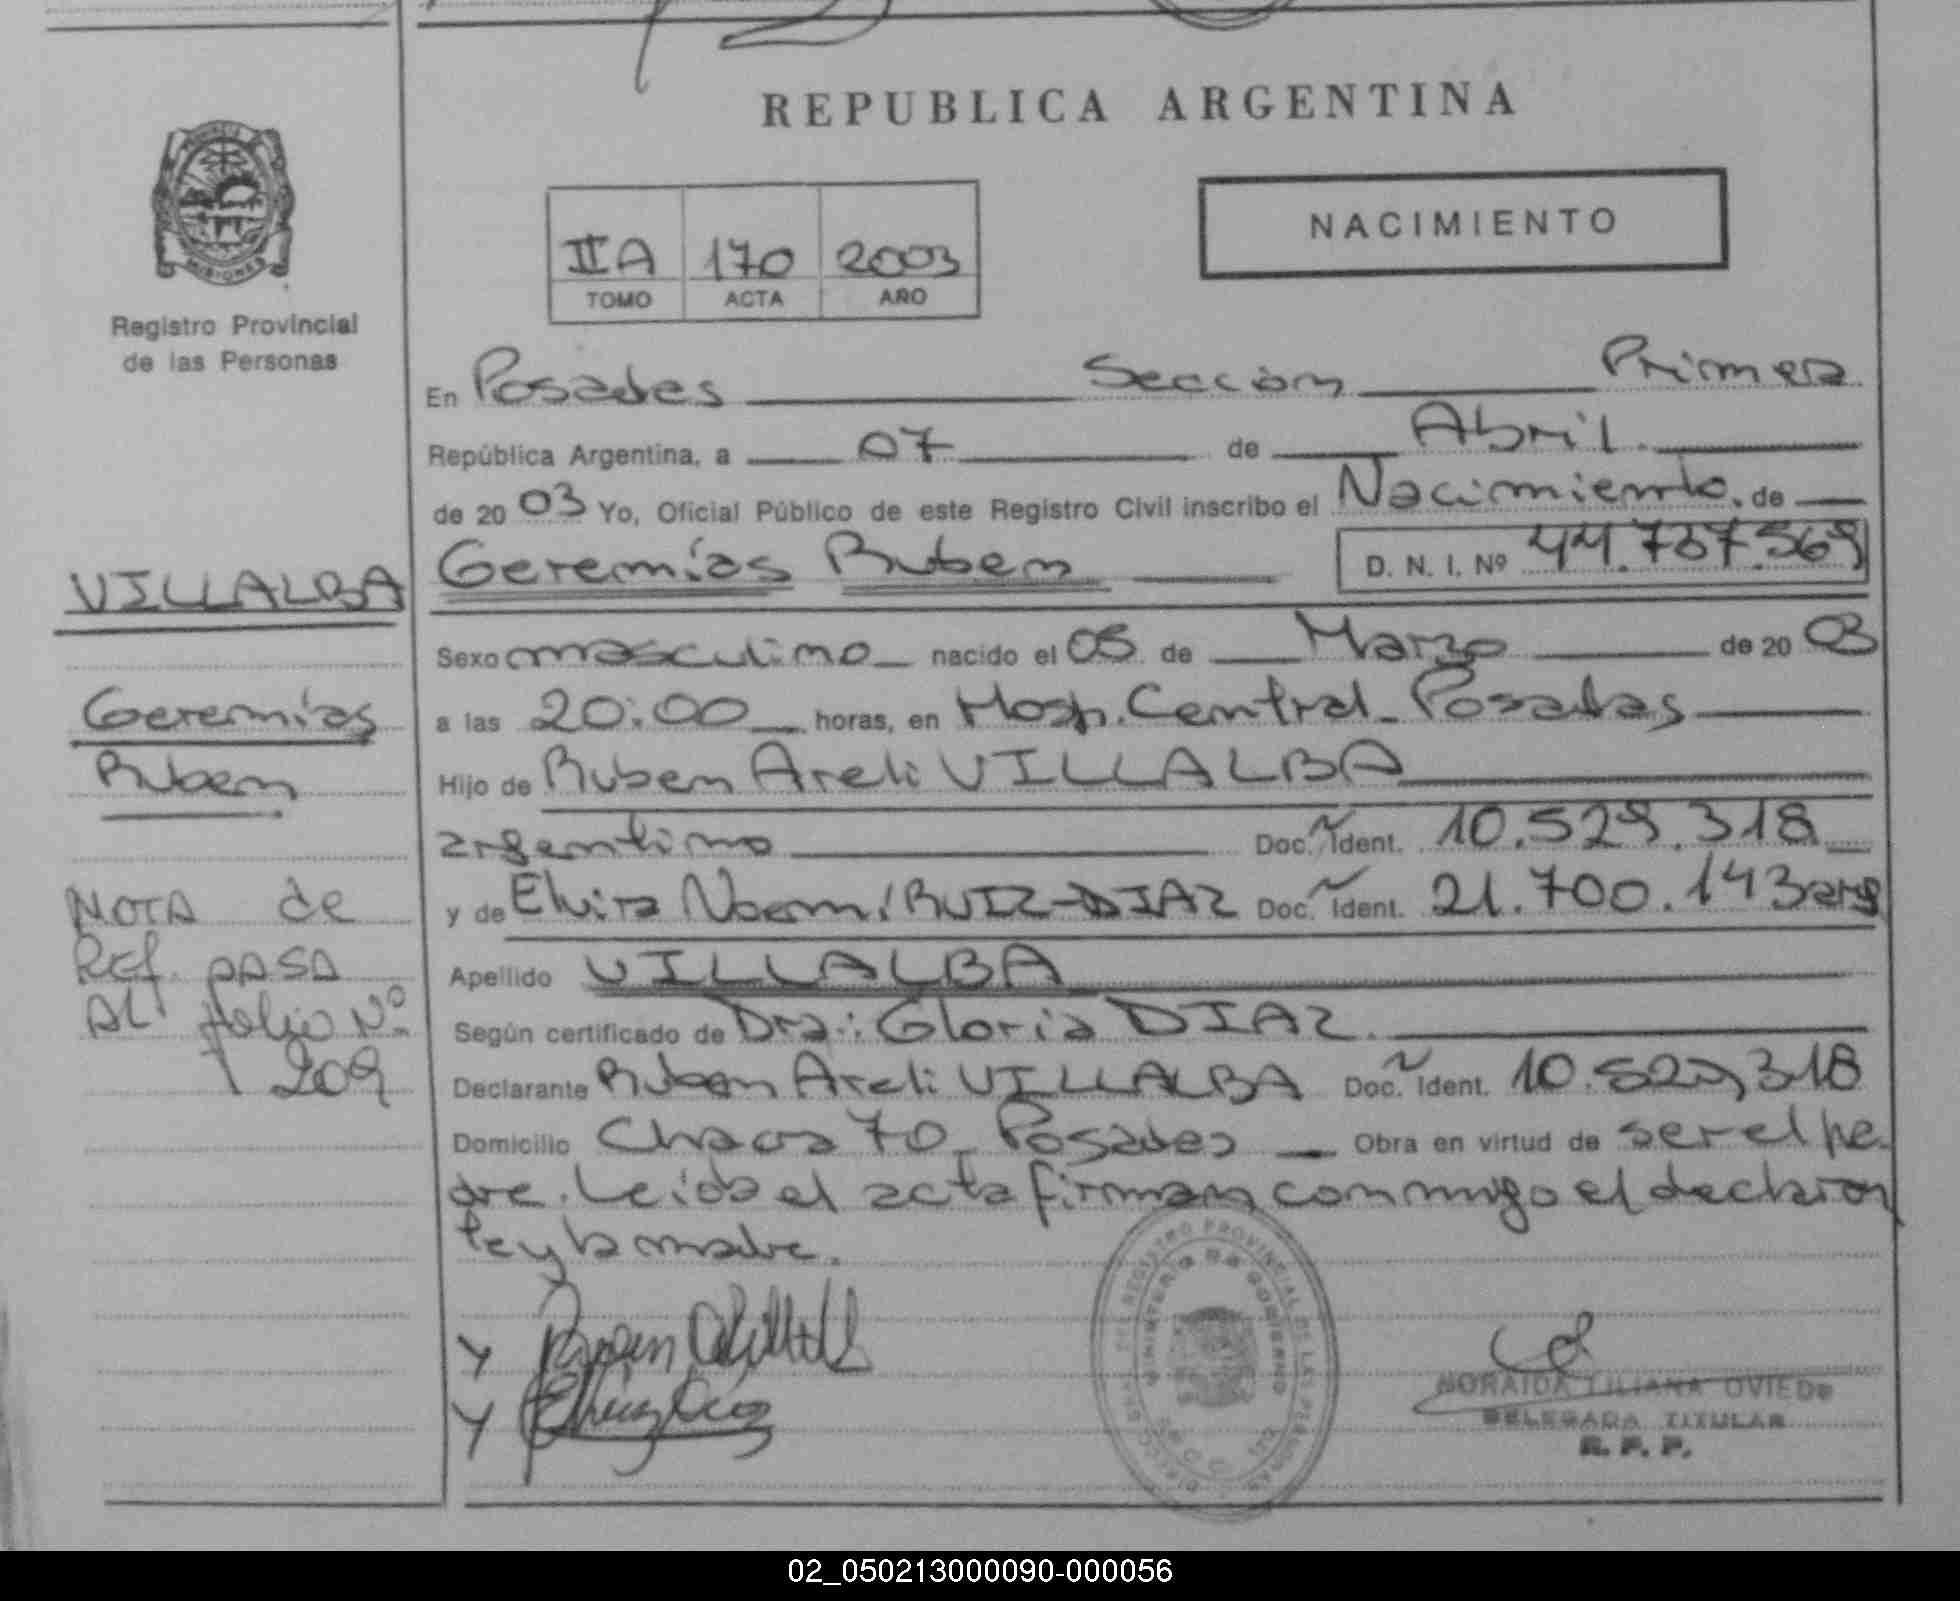 REPUBLICA ARGENTINA
MISIONES
Registro Provincial
de las Personas
NACIMIENTO
IIA 170 2003
TOMO ACTA AÑO
En Posadas Sección Primera
República Argentina, a 07 de Abril
de 2003 Yo, Oficial Público de este Registro Civil inscribo el Nacimiento. de
VILLALBA
Geremías Ruben
Geremías Ruben D. N. I. Nº 44.737.569
Sexo masculino nacido el 05 de Marzo de 2003
a las 20:00 horas, en Hosp. Central Posadas
Hijo de Ruben Areli VILLALBA
argentino Doc. Ident. 10.529.318
y de Elvira Noemí RUIZ-DIAZ Doc. Ident. 21.700.143 arg
NOTA de
Ref. PASA
AL folio Nº
209
Apellido VILLALBA
Según certificado de Dra.: Gloria DIAZ.
Declarante Ruben Areli VILLALBA Doc. Ident. 10.529.318
Domicilio Chacra 70 Posadas Obra en virtud de ser el pa
dre. Leída el acta firman conmigo el declaran
te y la madre.
DEL REGISTRO PROVINCIAL DE LAS PERSONAS
MINISTERIO DE GOBIERNO
NORAIDA LILIANA OVIEDO
DELEGADA TITULAR
R. P. P.
02_050213000090-000056